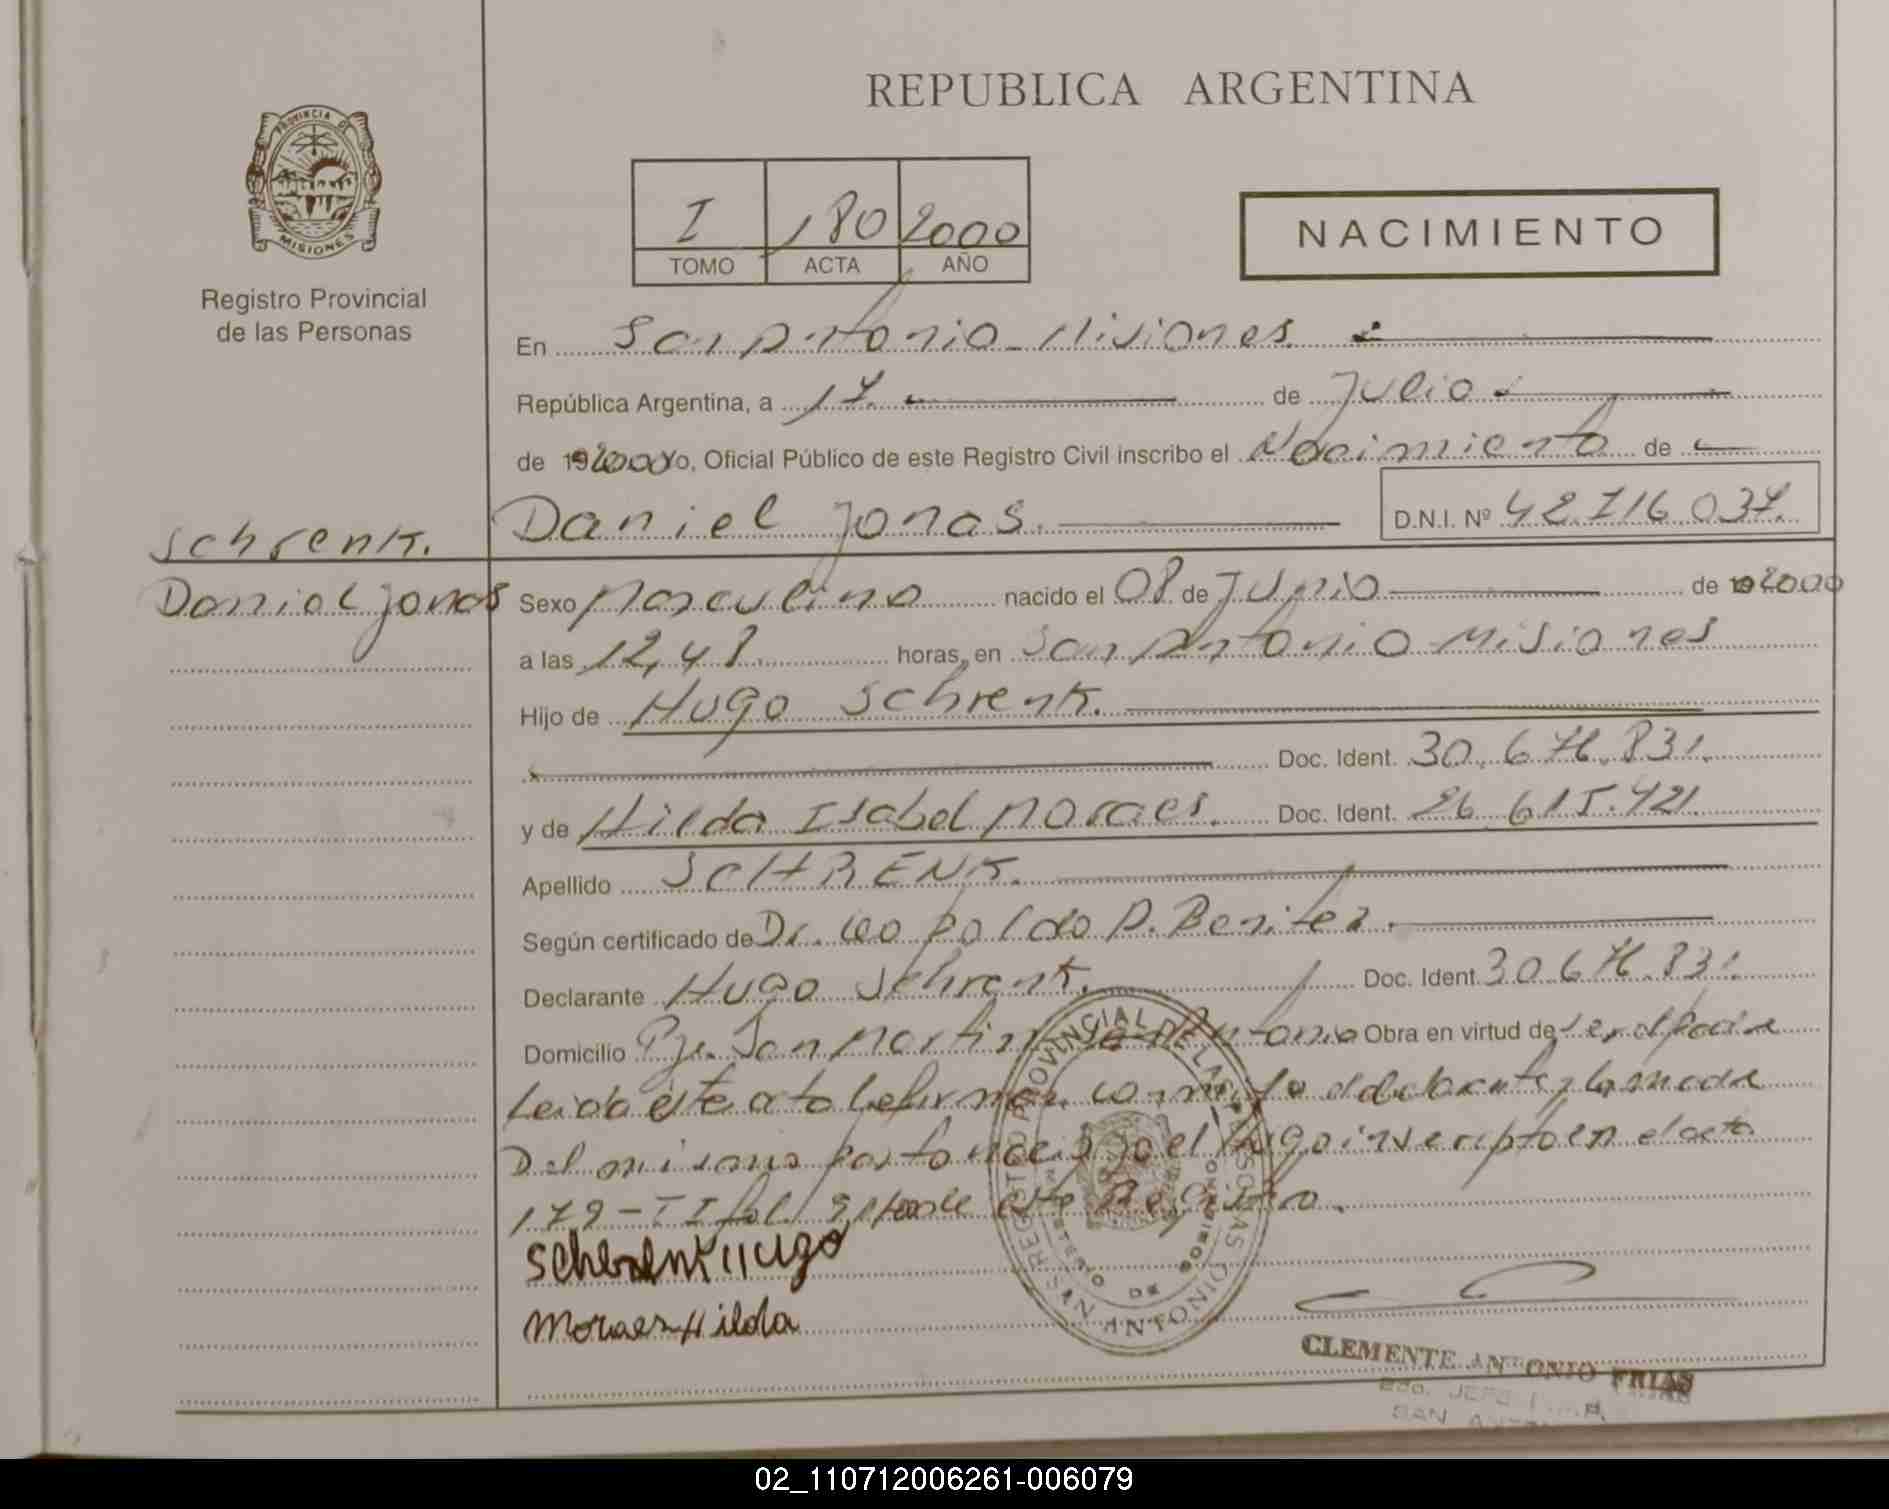 REPUBLICA ARGENTINA
PROVINCIA DE
MISIONES
Registro Provincial
de las Personas
I 180 2000
TOMO ACTA AÑO
NACIMIENTO
En San Antonio - Misiones
República Argentina, a 17. de Julio
de 192000 yo, Oficial Público de este Registro Civil inscribo el Nacimiento de
Schrenk. Daniel Jonas. D.N.I. Nº 42.716.037.
Daniel Jonas Sexo Masculino nacido el 08 de Junio de 192000
a las 12,48 horas, en San Antonio Misiones
Hijo de Hugo Schrenk.
Doc. Ident. 30.676.831.
y de Hilda Isabel Moraes. Doc. Ident. 26.615.421.
Apellido SCHRENK.
Según certificado de Dr. Leopoldo D. Benitez.
Declarante Hugo Schrenk. Doc. Ident. 30.676.831.
Domicilio Pje. San Martin San Antonio Obra en virtud de ser el padre
Leida este acta la firman conmigo el declarante y la madre
Del mismo parto nació Hugo inscripto en el acta
179 - TI fol. de este Registro.
Schrenk Hugo
Moraes Hilda
REGISTRO PROVINCIAL DE LAS PERSONAS
SAN ANTONIO
DE
CLEMENTE ANTONIO FRIAS
JEFE
SAN
02_110712006261-006079